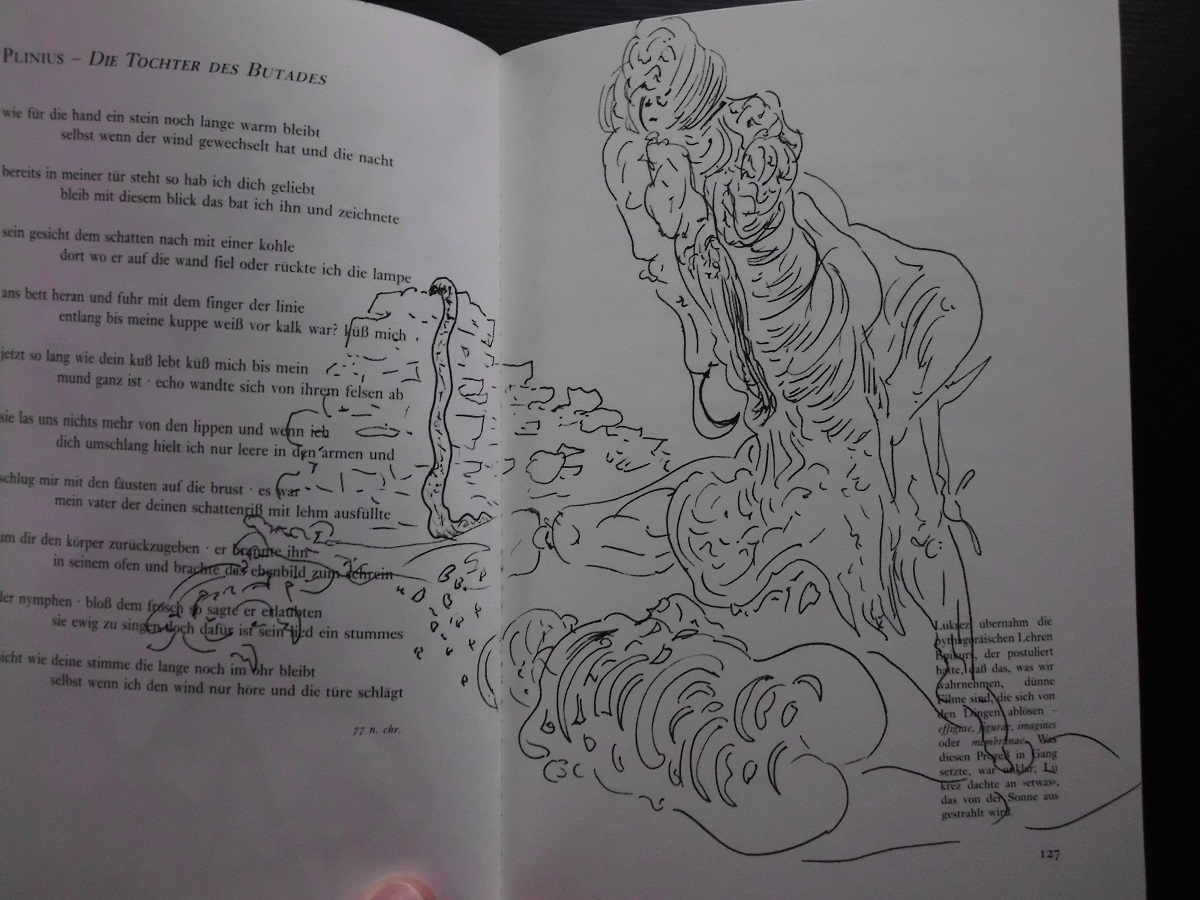 PLINIUS – DIE TOCHTER DES BUTADES
wie für die hand ein stein noch lange warm bleibt
selbst wenn der wind gewechselt hat und die nacht
bereits in meiner tür steht so hab ich dich geliebt
bleib mit diesem blick das bat ich ihn und zeichnete
sein gesicht dem schatten nach mit einer kohle
dort wo er auf die wand fiel oder rückte ich die lampe
ans bett heran und fuhr mit dem finger der linie
entlang bis meine kuppe weiß vor kalk war? küß mich
jetzt so lang wie dein kuß lebt küß mich bis mein
mund ganz ist · echo wandte sich von ihrem felsen ab
sie las uns nichts mehr von den lippen und wenn ich
dich umschlang hielt ich nur leere in den armen und
schlug mir mit den fäusten auf die brust · es war
mein vater der deinen schattenriß mit lehm ausfüllte
um dir den körper zurückzugeben · er brannte ihn
in seinem ofen und brachte das ebenbild zum schrein
der nymphen · bloß dem frosch so sagte er erlaubten
sie ewig zu singen doch dafür ist sein lied ein stummes
nicht wie deine stimme die lange noch im ohr bleibt
selbst wenn ich den wind nur höre und die türe schlägt
77 n. chr.
Lukrez übernahm die
pythagoräischen Lehren
Epikurs, der postuliert
hatte, daß das, was wir
wahrnehmen, dünne
Filme sind, die sich von
den Dingen ablösen –
effigiae, figurae, imagines
oder membranae. Was
diesen Prozeß in Gang
setzte, war unklar; Lu
krez dachte an »etwas«,
das von der Sonne aus
gestrahlt wird.
127